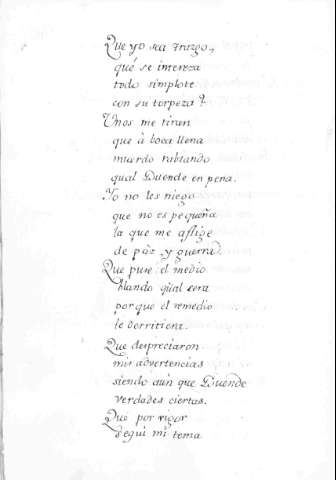 Que yo sea Trasgo,
qué se interesa
todo simplote
con su torpeza?
Unos me tiran
que à boca llena
muerdo rabiando
qual Duende en pena.
Yo no les niego
que no es pequeña
la que me aflige
de páz, y guerra.
Que puse el medio
blando qual cera
porque el remedio
le derritiera.
Que despreciaron
mis advertencias
siendo aun que Duende
verdades ciertas.
Que por rigor
segui mi tema